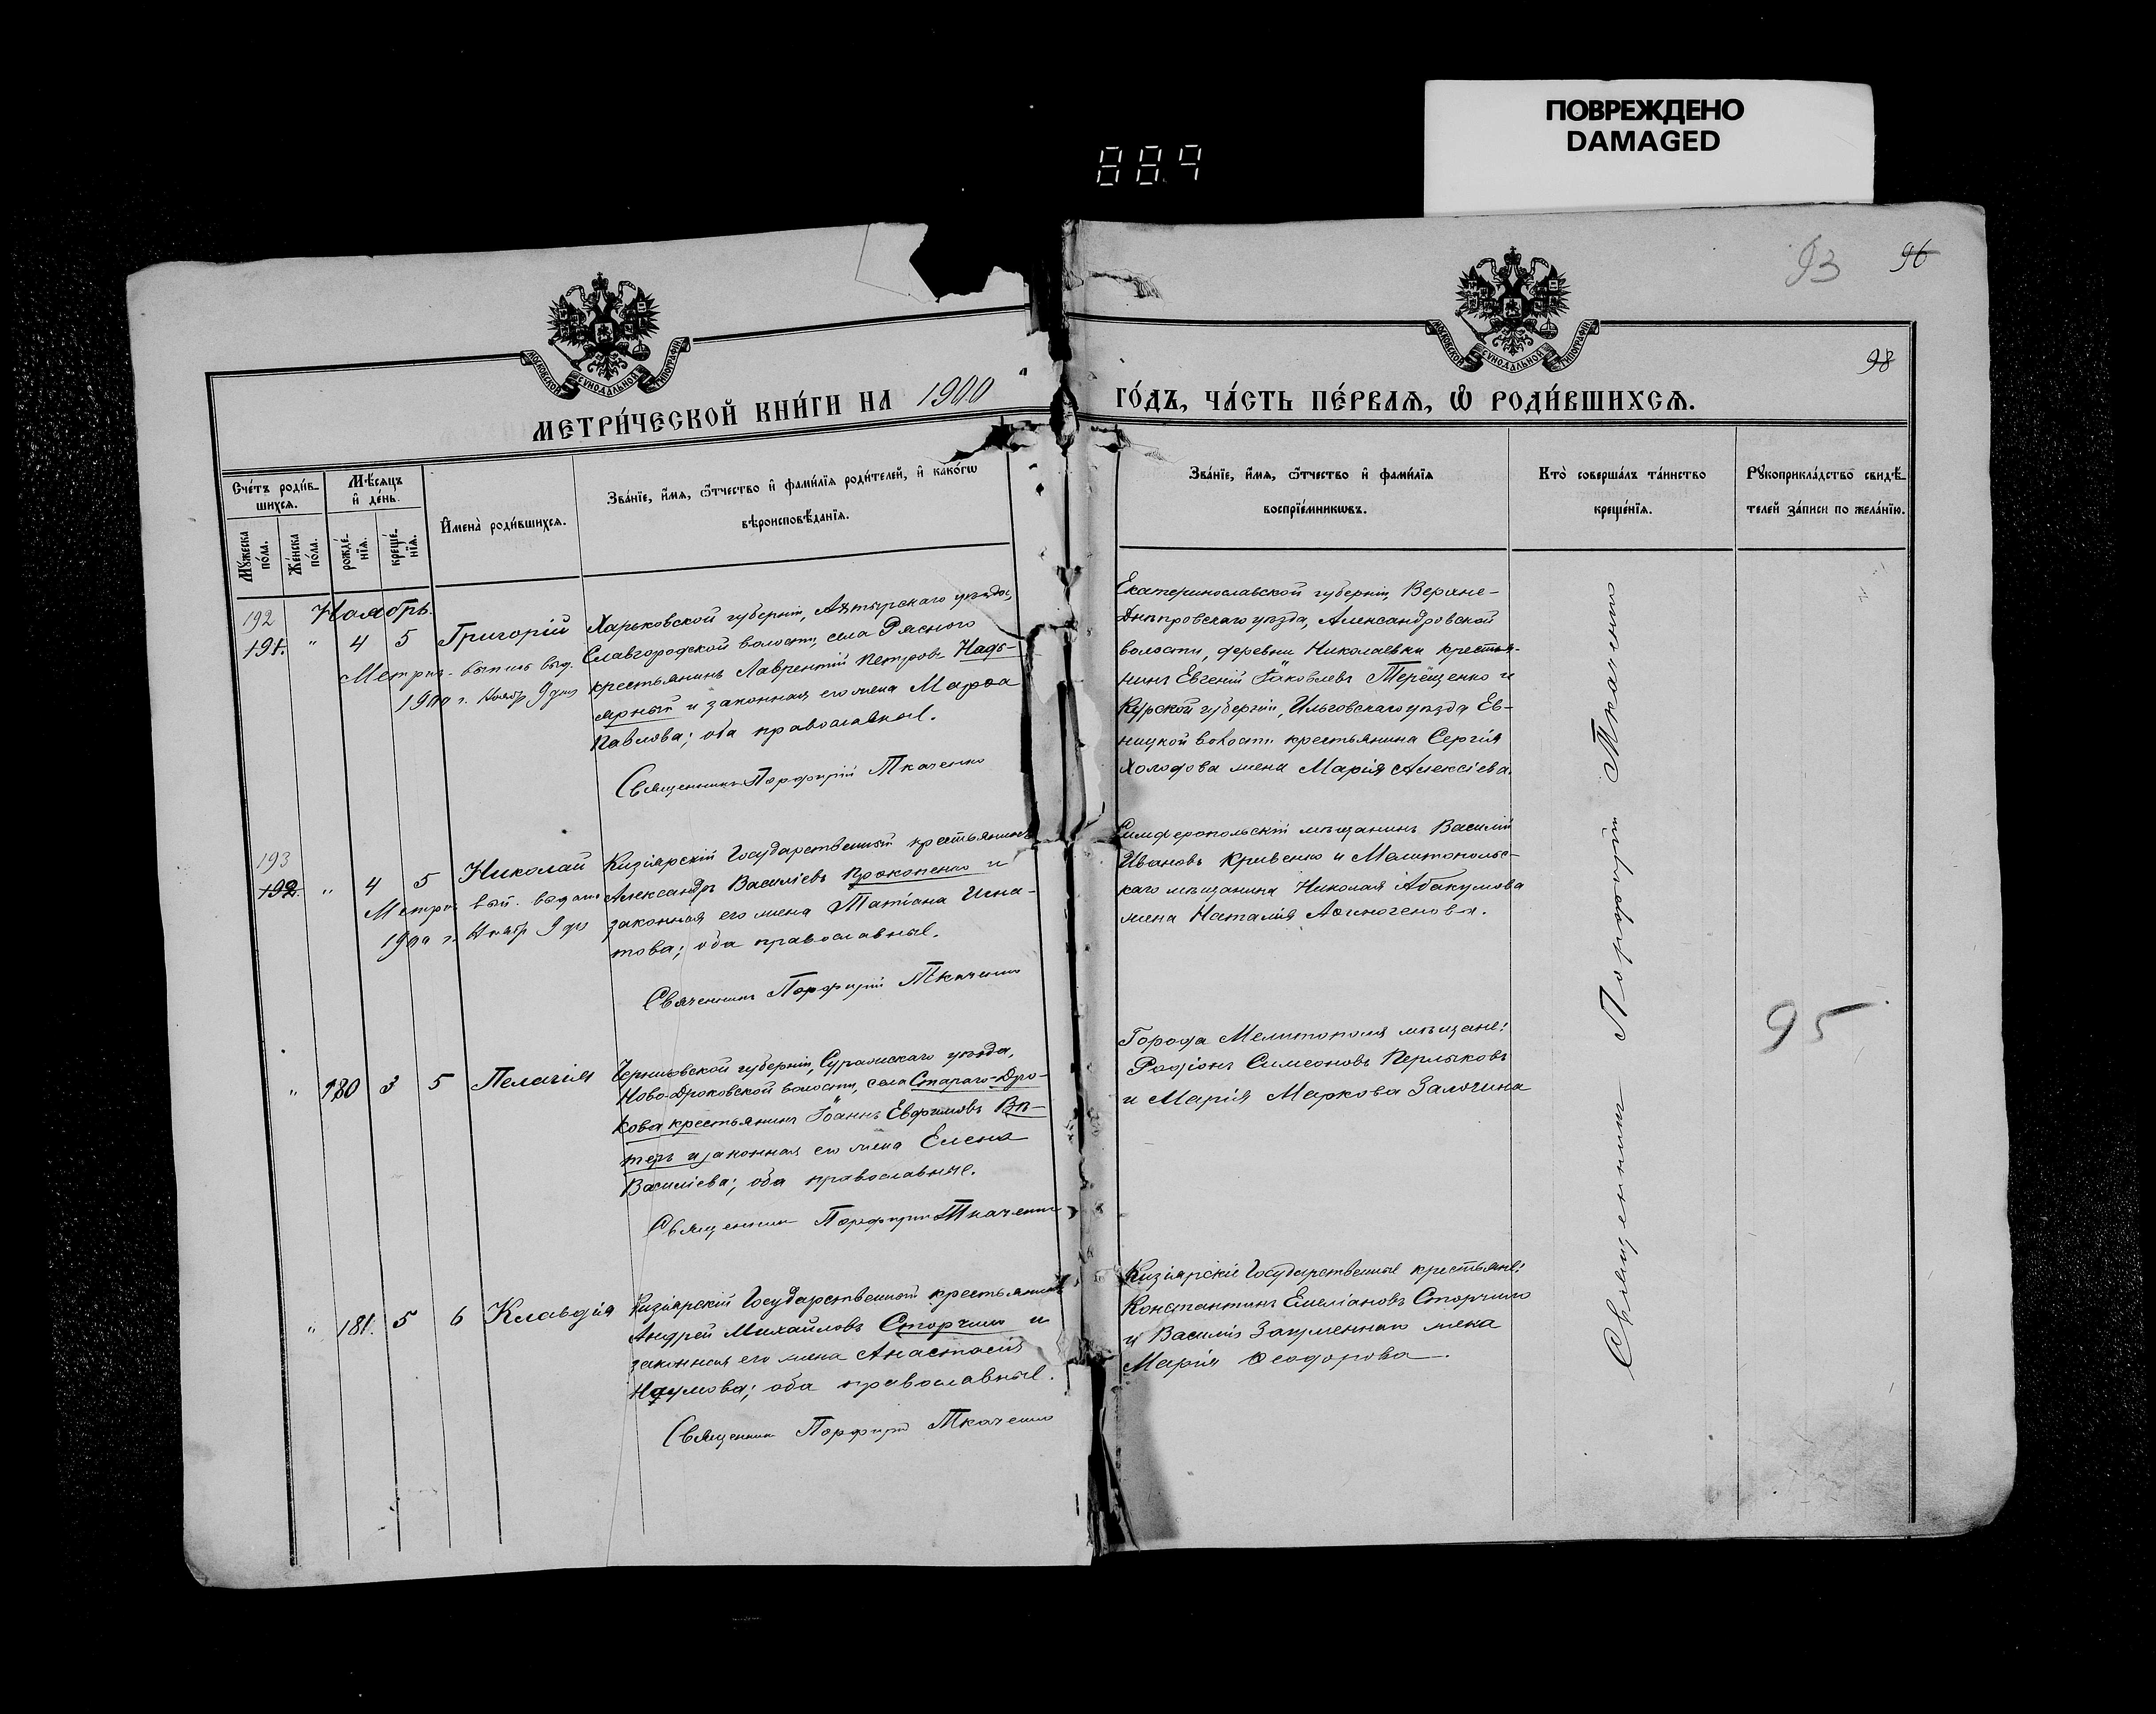 ПОВРЕЖДЕНО
DAMAGED
889
93 96
98
МОСКОВСКОЙ СѴНОДАЛЬНОЙ ТИПОГРАФІИ
МОСКОВСКОЙ СѴНОДАЛЬНОЙ ТИПОГРАФІИ
МЕТРИ́ЧЕСКОЙ КНИ́ГИ НА 1900
ГО́ДЪ, ЧА́СТЬ ПЕ́РВАѦ, Ѡ РОДИ́ВШИХСѦ.
Сче́тъ роди́в-
шихсѧ.
Мꙋ́жеска
по́ла.
Же́нска
по́ла.
Мѣ́сѧцъ
и҆ де́нь.
рожде́-
нїѧ.
креще́-
нїѧ.
И҆мена̀ роди́вшихсѧ.
Зва́нїе, и҆́мѧ, ѻ҆́тчество и҆ фами́лїѧ роди́телей, и҆ како́гѡ
вѣроисповѣ́данїѧ.
Зва́нїе, и҆́мѧ, ѻ҆́тчество и҆ фами́лїѧ
воспрїе́мникѡвъ.
Кто̀ соверша́лъ та́инство
креще́нїѧ.
Рꙋкоприкла́дство свидѣ́-
телей за́писи по жела́нїю.
Ноябрь.
192
191. " 4 5 Григорій
Метрич. выпись выд.
1900 г. Ноябр 9 дня
Харьковской губерніи, Ахтырскаго уѣзда,
Славгородской волости, села Ряснаго
крестьянинъ Лаврентій Петровъ Надъ-
ярный и законная его жена Марѳа
Павлова; оба православные.
Священникъ Порфирій Ткаченко
Екатеринославской губерніи, Верхне-
Днѣпровскаго уѣзда, Александровской
волости, деревни Николаевки крестья-
нинъ Евгеній Іаковлевъ Терещенко и
Курской губерніи, Льговскаго уѣзда
волости крестьянина Сергія
Холодова жена Марія Алексіева.
193
192. " 4 5 Николай
Метрич. вып. выдана
1900 г. Ноябр 9 дня
Кизіярскій Государственный крестьянинъ
Александръ Василіевъ Прокопенко и
законная его жена Татіана Игна-
това; оба православные.
Священникъ Порфирій Ткаченко
Симферопольскій мѣщанинъ Василій
Ивановъ Кривенко и Мелитопольс-
каго мѣщанина Николая Абакумова
жена Наталія Аѳиногенова.
" 180 3 5 Пелагія
Черниговской губерніи, Суражскаго уѣзда,
Ново-Дроковской волости, села Стараго-Дро-
кова крестьянинъ Іоаннъ Евфимовъ Вѣ-
теръ и законная его жена Елена
Василіева; оба православные.
Священникъ Порфирій Ткаченко
Города Мелитополя мѣщане:
Родіонъ Симеоновъ
и Марія Маркова
" 181. 5 6 Клавдія
Кизіярскій Государственный крестьянинъ
Андрей Михайловъ Сторчило и
законная его жена Анастасія
Наумова; оба православные.
Священникъ Порфирій Ткаченко
Кизіярскіе Государственные крестьяне:
Константинъ Емеліановъ Сторчило
и Василія жена
Марія Ѳеодорова.
Священникъ Порфирій Ткаченко
95